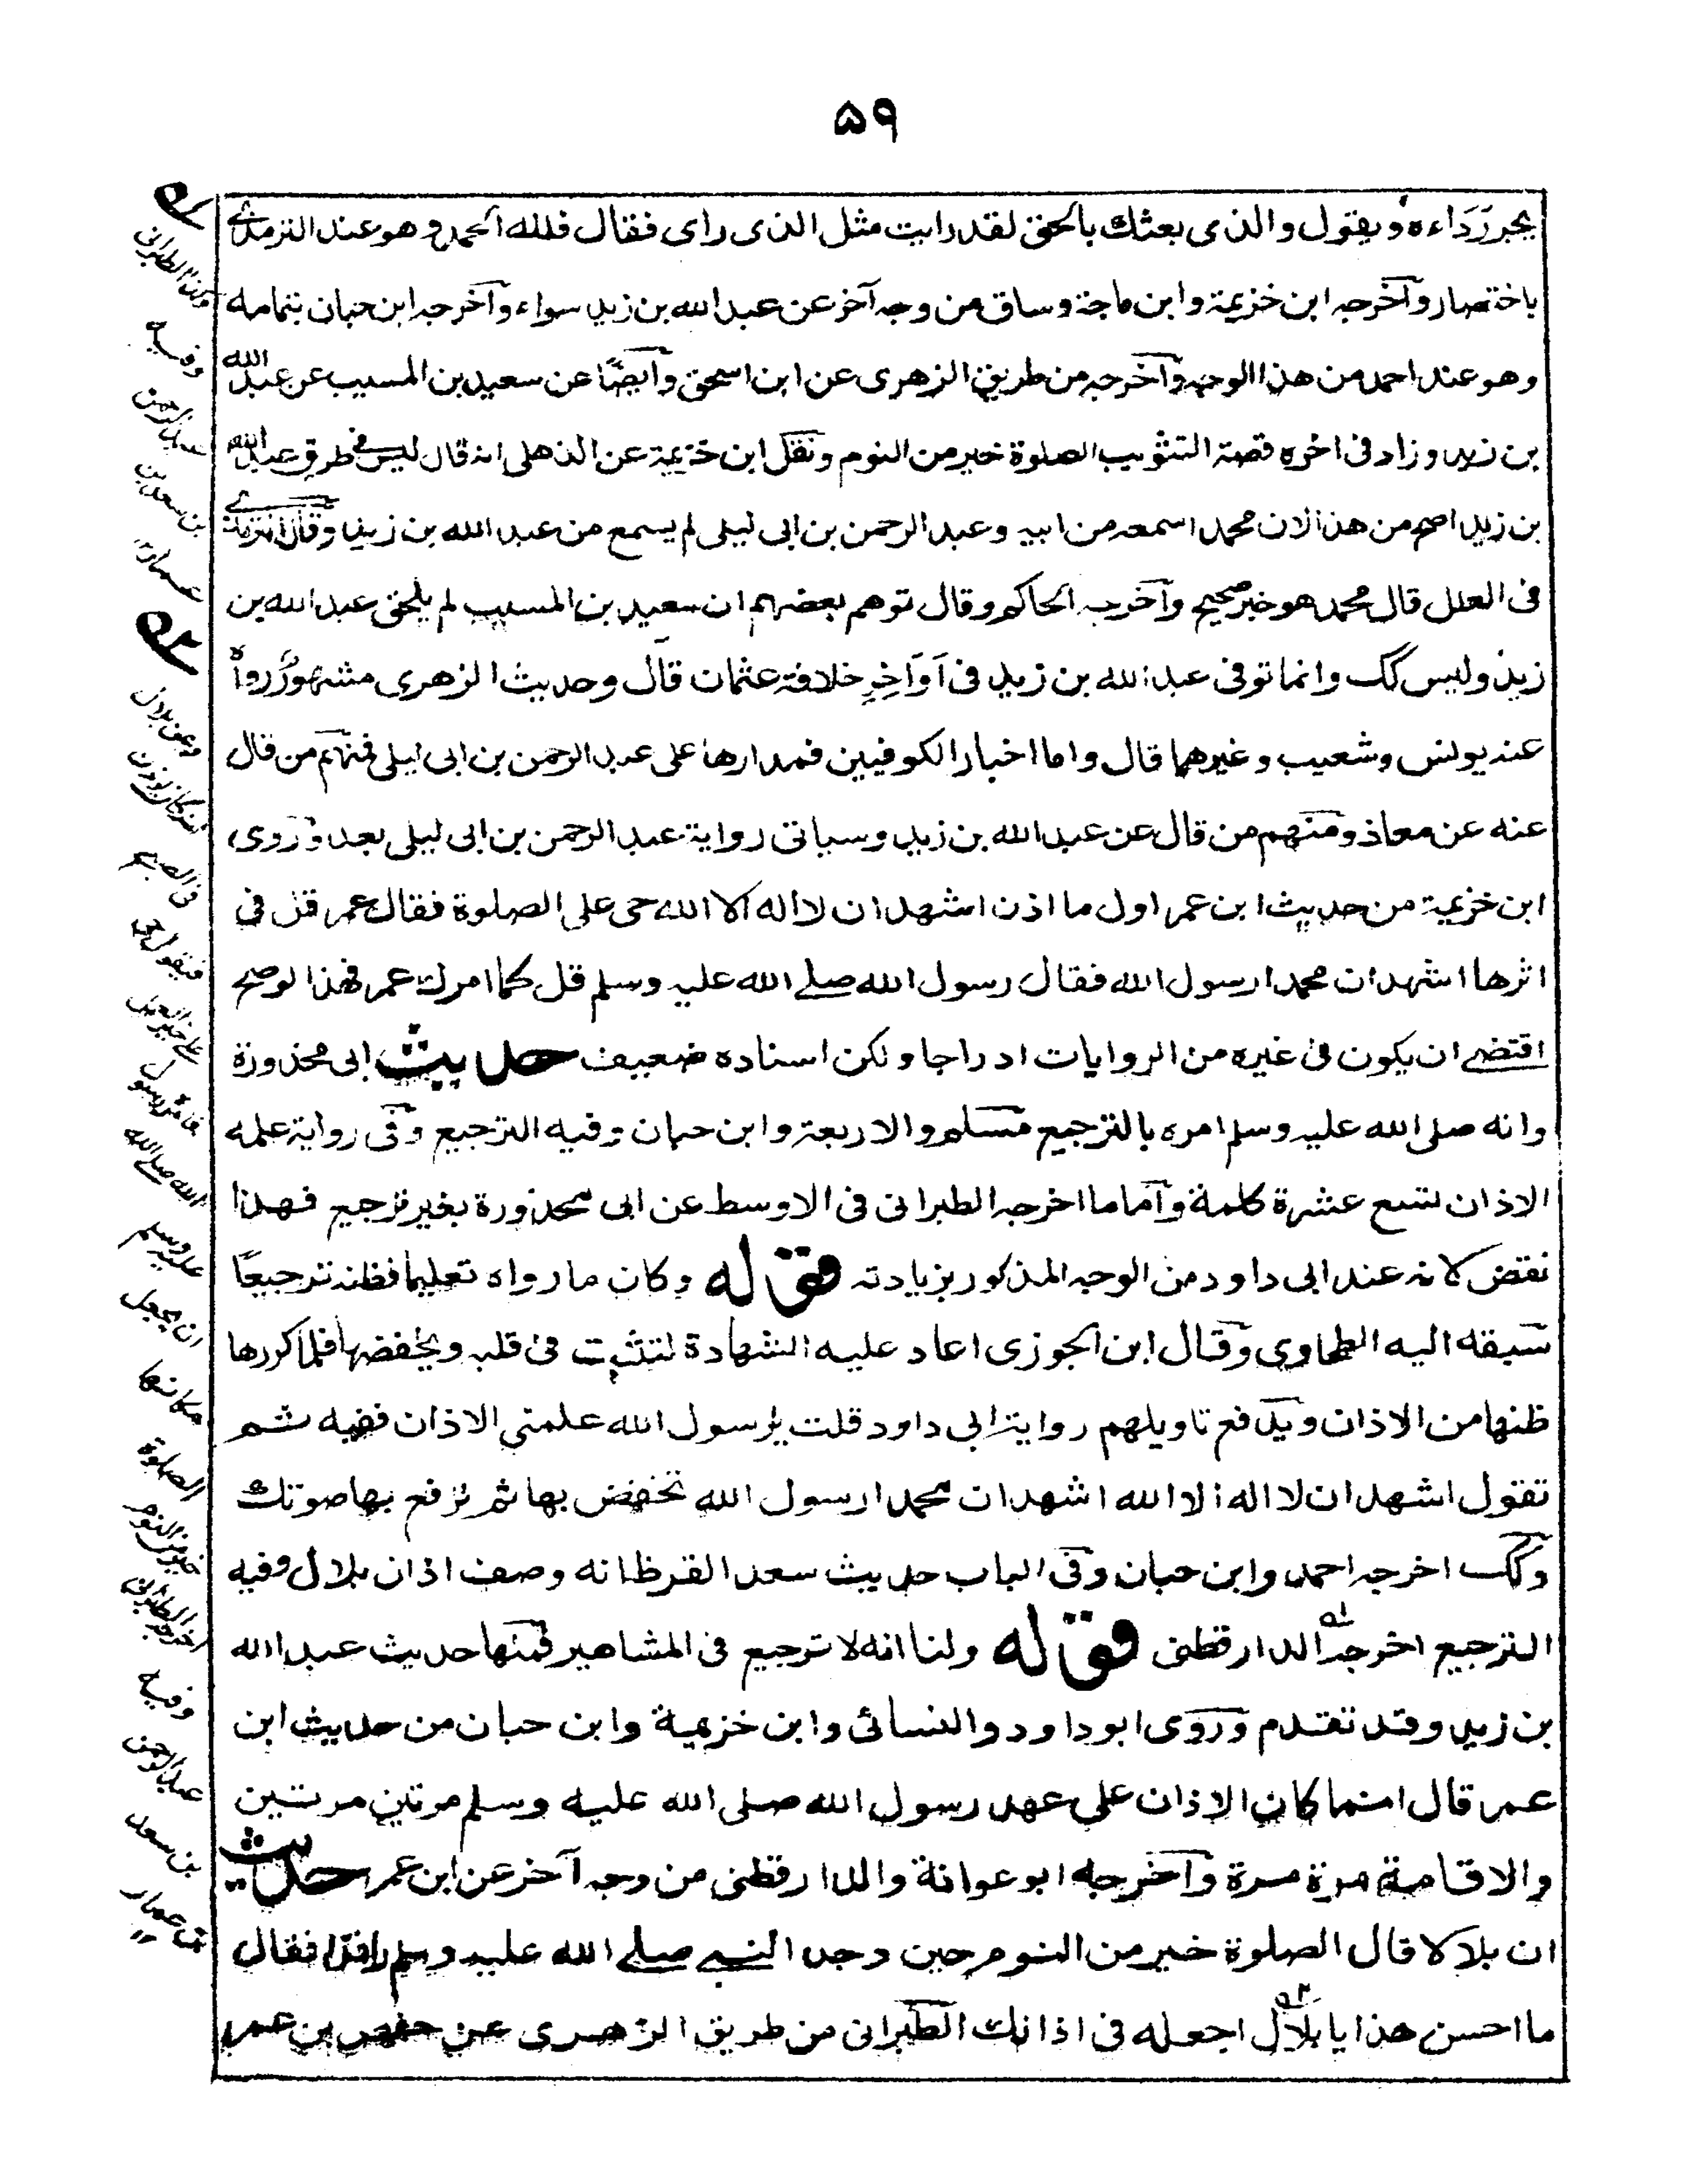 ۵۹
يجر رَدَاءه ويقول والذى بعثك بالحق لقد رايت مثل الذى راى فقال فلله الحمد وهو عند الترمذے
باختصار وآخرجه ابن خزيمة وابن ماجة وساق من وجه آخر عن عبد الله بن زيد سواء وآخرجه ابن حبان بتمامه
وهو عند احمد من هذا الوجه وآخرجه من طريق الزهرى عن ابن اسحق وآيضًا عن سعيد بن المسيب عن عبد الله
بن زيد وزاد فى اخره قصة التثويب الصلوة خير من النوم ونقل ابن خزيمة عن الذهلى انه قال ليس فى طرق عبد الله
بن زيد اصح من هذا لان محمدا سمعه من ابيه وعبد الرحمن بن ابى ليلى لم يسمع من عبد الله بن زيد وقال الترمذے
فى العلل قال محمد هو خبر صحيح وآخرجه الحاكم وقال توهم بعضهم ان سعيد بن المسيب لم يلحق عبد الله بن
زيد وليس كك وانما توفى عبد الله بن زيد فى آوَاخِرِ خلافة عثمان قال وحديث الزهرى مشهورٌ رواه
عنه يونس وشعيب وغيرهما قال واما اخبار الكوفيين فمدارها على عبد الرحمن بن ابى ليلى فمنهم من قال
عنه عن معاذ ومنهم من قال عن عبد الله بن زيد وسياتى رواية عبد الرحمن بن ابى ليلى بعد وروى
ابن خزيمة من حديث ابن عمر اول ما اذن اشهد ان لا اله الا الله حى على الصلوة فقال عمر قل فى
اثرها اشهد ان محمدا رسول الله فقال رسول الله صلے الله عليه وسلم قل كما امرك عمر فهذا لو صح
اقتضے ان يكون فى غيره من الروايات ادراجا ولكن اسناده ضعيف حديث ابى محذورة
وانه صلى الله عليه وسلم امره بالترجيع مسلم والاربعة وابن حبان وفيه الترجيع وفى رواية علمه
الاذان تسع عشرة كلمة وآما ما اخرجه الطبرانى فى الاوسط عن ابى محذورة بغير ترجيع فهذا
نقض لانه عند ابى داود من الوجه المذكور بزيادته قوله وكان ما رواه تعليما فظنه ترجيعًا
سبقه اليه الطحاوى وقال ابن الجوزى اعاد عليه الشهادة لتثبت فى قلبه ويحفضها فلما كررها
ظنها من الاذان ويدفع تاويلهم رواية ابى داود قلت يا رسول الله علمنى الاذان ففيه ثم
تقول اشهد ان لا اله الا الله اشهد ان محمدا رسول الله تخفض بها ثم ترفع بها صوتك
وكك اخرجه احمد وابن حبان وفى الباب حديث سعد القرظ انه وصف اذان بلال وفيه
الترجيع اخرجه الدارقطنى قوله ولنا انه لا ترجيع فى المشاهير فمنها حديث عبد الله
بن زيد وقد تقدم وروى ابو داود والنسائى وابن خزيمة وابن حبان من حديث ابن
عمر قال انما كان الاذان على عهد رسول الله صلى الله عليه وسلم مرتين مرتين
والاقامة مرة مرة وآخرجه ابو عوانة والدارقطنى من وجه آخر عن ابن عمر حديث
ان بلالا قال الصلوة خير من النوم حين وجد النبے صلے الله عليه وسلم راقدا فقال
ما احسن هذا يا بلال اجعله فى اذانك الطبرانى من طريق الزهرى عن حفص بن عمر
وكذا الطبرانى
وفيه
عبد الرحمن
بن سعد بن
عمار
وعن بلال
انه كان يؤذن
فى الصبح
فيقول حى
على خير العمل
فامره رسول
الله صلى الله
عليه وسلم
ان يجعل
مكانها
الصلوة
خير من النوم
اخرجه الطبرانى
وفيه
عبد الرحمن
بن سعد
بن عمار